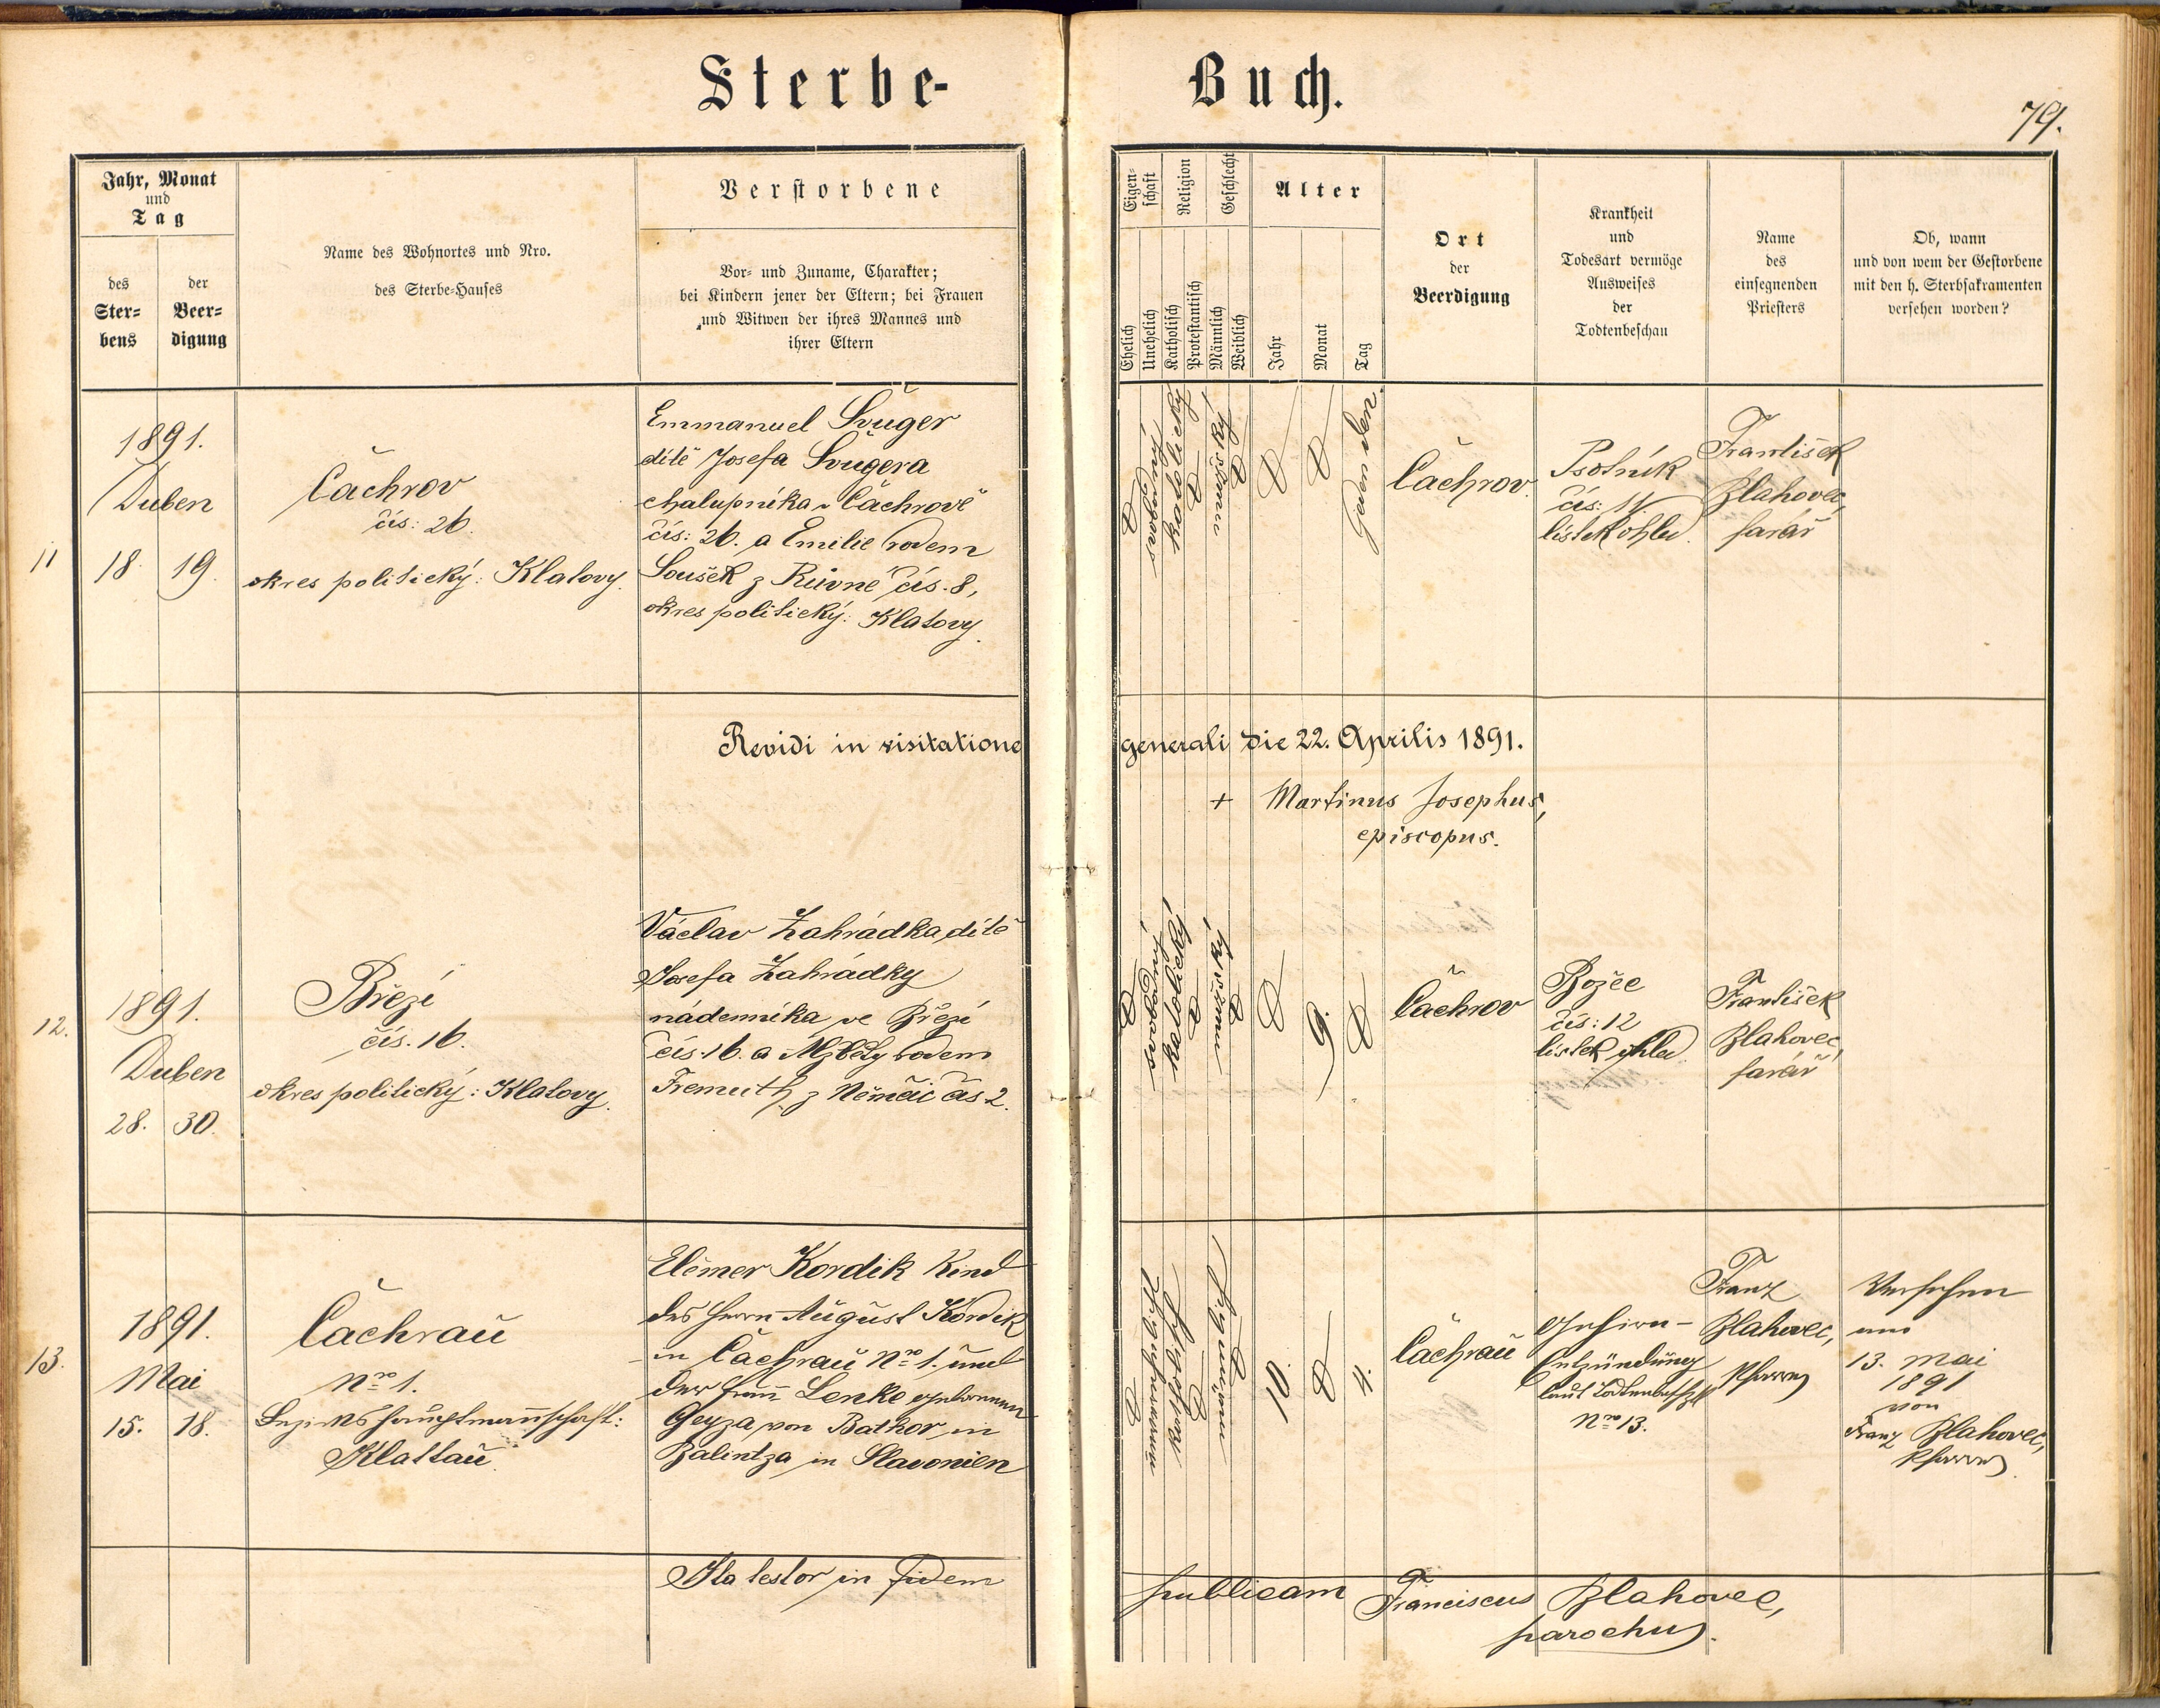 Sterbe-Buch.
79.
Jahr, Monat
und
Tag
des
Ster-
bens
der
Beer-
digung
Name des Wohnortes und Nro.
des Sterbe-Hauses
Verstorbene
Vor- und Zuname, Charakter;
bei Kindern jener der Eltern; bei Frauen
und Witwen der ihres Mannes und
ihrer Eltern
Eigen-
schaft
Religion
Geschlecht
Ehelich
Unehelich
Katholisch
Protestantisch
Männlich
Weiblich
Alter
Jahr
Monat
Tag
Ort
der
Beerdigung
Krankheit
und
Todesart vermöge
Ausweises
der
Todtenbeschau
Name
des
einsegnenden
Priesters
Ob, wann
und von wem der Gestorbene
mit den h. Sterbsakramenten
versehen worden?
11
1891.
Duben
18. 19.
Čachrov
čís: 26.
okres politický: Klatovy.
Emmanuel Švuger
dítě Josefa Švugera
chalupníka v Čachrově
čís: 26. a Emilie rodem
Soušek z Růvné čís. 8,
okres politický: Klatovy.
katolický
mužský
jeden den.
Čachrov.
Psotník
čís: 11.
lístek ohled.
František
Blahovec,
farář
Revidi in visitatione generali die 22. Aprilis 1891.
+ Martinus Josephus,
episcopus.
12.
1891.
Duben
28. 30.
Březí
čís. 16.
okres politický: Klatovy.
Václav Zahrádka, dítě
Josefa Zahrádky
nádenníka ve Březí
čís. 16. a Alžběty rodem
Fremuth z Němčic čís 2.
katolický
mužský
9.
Čachrov
Božec
čís: 12
lístek ohled.
František
Blahovec,
farář
13.
1891.
Mai
15. 18.
Čachrau
Nro 1.
Bezirkshauptmannschaft:
Klattau
Elémer Kordik Kind
des Herrn August Kordik
in Čachrau Nro 1. und
der Frau Lenke geborenen
Geyza von Bathor in
Balintza in Slavonien
10.
4.
Čachrau
Gehirn-
Entzündung
laut
Nro 13.
Franz
Blahovec,
Pfarrer
Versehen
am
13. Mai
1891
von
Franz Blahovec,
Pfarrer
Ita testor in fidem publicam Franciscus Blahovec,
parochus.